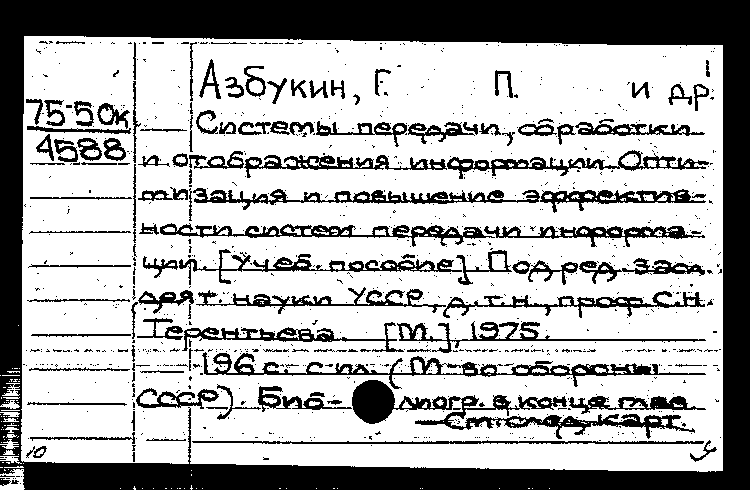 1
Азбукин, Г. П. и др.
75-50к
4588
Системы передачи, обработки
и отображения информации. Опти-
мизация и повышение эффектив-
ности систем передачи информа-
ции. [Учеб. пособие]. Под ред. засл.
деят. науки УССР, д.т.н., проф. С.Н.
Терентьева. [М.], 1975.
196 с. с ил. (М-во обороны
СССР). Биб- лиогр. в конце глав.
См. след. карт.
10